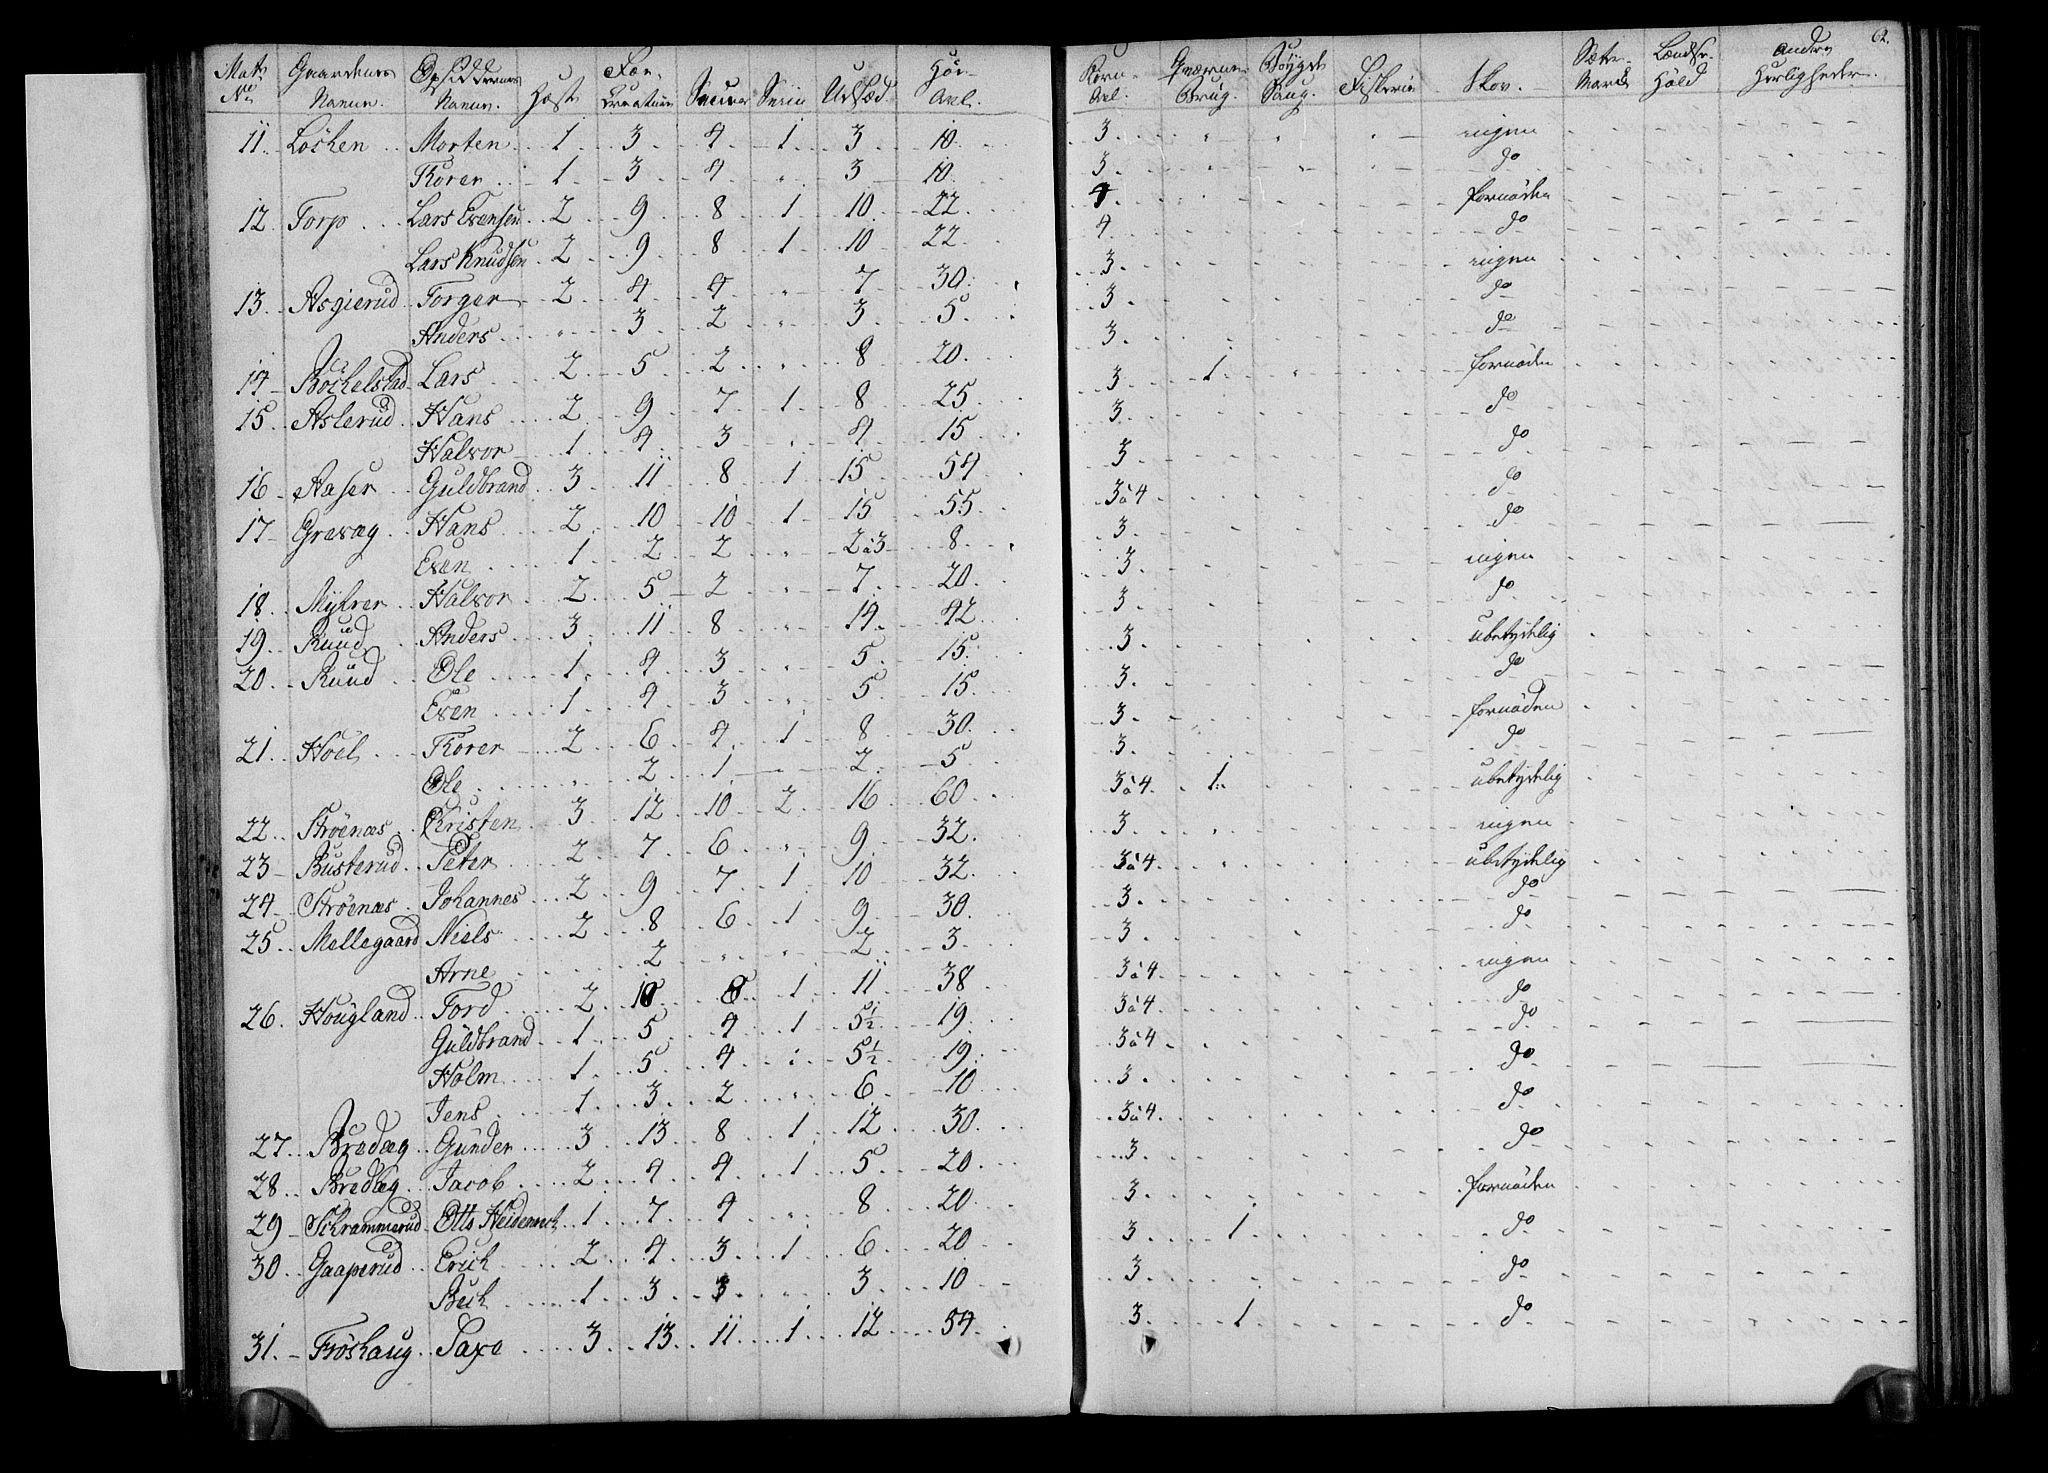 Mats No Gaardenes Navne. Opsiddernes Navne. Hæst Fæe-Creature Smaaer Sviin Udsæd. Høe-Avl.
11. Løshen Morten 1 3 4 1 3 10.
Thorer 1 3 4 " 3 10.
12. Torp Lars Evensen 2 9 8 1 10 22
Lars Knudsen 2 9 8 1 10 22
13. Asgierud Torger 2 4 4 " 7 30.
Anders " 3 2 " 3 5
14 Böchelstad Lars 2 5 2 " 8 20.
15 Aslerud Hans 2 9 7 1 8 25
Halvor 1 4 3 " 4 15
16 Aaser Guldbrand 3 11 8 1 15 54
17 Grevæg Hans 2 10 10 1 15 55
Even 1 2 2 " 2 à 3 8
18 Myhrer Halvor 2 5 2 " 7 20
19 Ruud Anders 3 11 8 " 14 42
20 Ruud Ole 1 4 3 " 5 15
Even 1 4 3 " 5 15
21 Hoel Thorer 2 6 4 1 8 30.
Ole " 2 1 2 5
22 Strøenæs Christen 3 12 10 2 16 60
23 Busterud Peter 2 7 6 " 9 32
24 Strøenæs Johannes 2 9 7 1 10 32
25 Mellegaard Niels 2 8 6 1 9 30.
Arne 2 " " 2 3
26. Hougland Tord 2 10 6 1 11 38
Guldbrand 1 5 4 1 5½ 19
Holm 1 5 4 : 5½ 19
Jens 1 3 2 " 6 10
27 Bredæg Gunder 3 13 8 1 12 30.
28 Bredæg Jacob 2 4 4 1 5 20
29 Schrammerud Otto Heidenrich 1 7 4 " 8 20
30 Gaaperud Erich 2 4 3 1 6 20
Bech 1 3 3 " 3 10
31. Frøshaug Saxe 3 13 11 1 12 54
62.
Korn-Avl. Qværne-Brug. Bøygde Saug. Fiskerie Skov. Sætte-Mark Lændse-Höld andre Herligheder.
3 ingen
3 do
4 fornøden
4 do
3 ingen
3 do
3 do
3 1 fornøden
3 do
3 do
3 à 4 do
3 do
3 ingen
3 do
3 ubetydelig
3 do
3 fornøden
3 do
3 à 4 1 ubetydelig
3 ingen
3 à 4 ubetydelig
3 do
3 do
3 à 4 ingen
3 à 4 do
3 à 4 do
3 do
3 à 4 do
3 do
3 fornøden
3 1 do
3 do
3 1 do